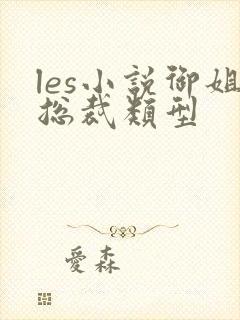 les小説御姐
総裁類型
愛森